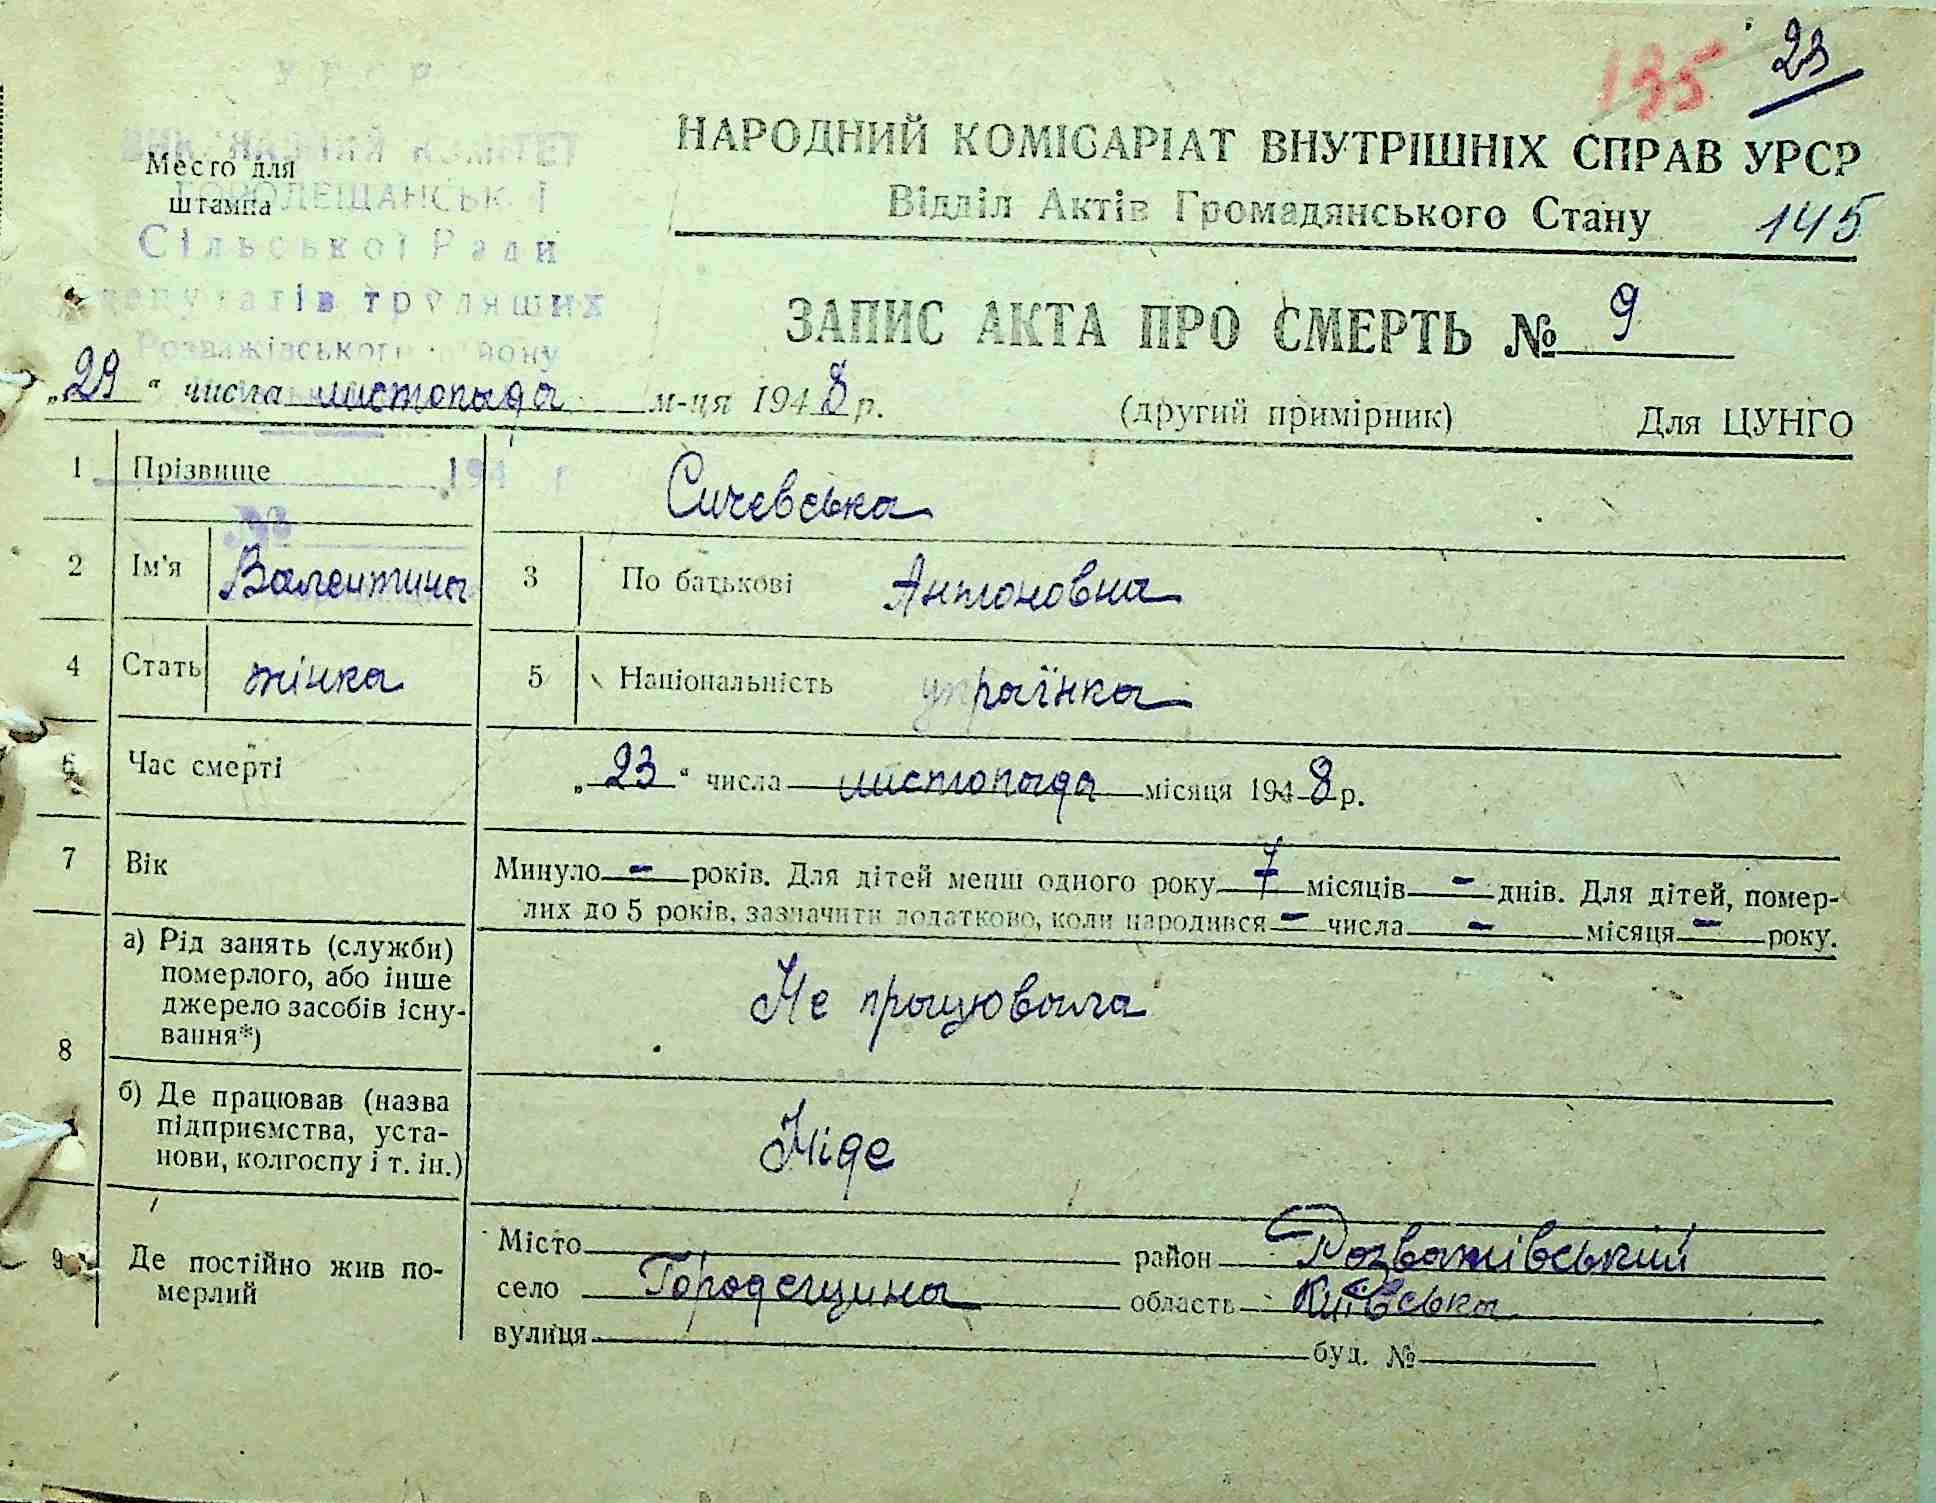 135 23
УРСР
ВИКОНАВЧИЙ КОМІТЕТ
НАРОДНИЙ КОМІСАРІАТ ВНУТРІШНІХ СПРАВ УРСР
Место для
штампа
Сільської Ради
Відділ Актів Громадянського Стану 145
депутатів трудящих
Розважівського району
ЗАПИС АКТА ПРО СМЕРТЬ № 9
„29“ числа листопада м-ця 1948 р. (другий примірник) Для ЦУНГО
194 р
№
1 Прізвище Сичевська
2 Ім'я Валентина 3 По батькові Антоновна
4 Стать жінка 5 Національність українка
6 Час смерті „23“ числа листопада місяця 1948 р.
7 Вік Минуло - років. Для дітей менш одного року 7 місяців - днів. Для дітей, помер-
лих до 5 років, зазначити додатково, коли народився - числа - місяця - року.
8 а) Рід занять (служби)
померлого, або інше
джерело засобів існу-
вання*)
Не працювала
б) Де працював (назва
підприємства, уста-
нови, колгоспу і т. ін.)
Ніде
9 Де постійно жив по-
мерлий
Місто район Розважівський
село Городещина область Київська
вулиця буд. №